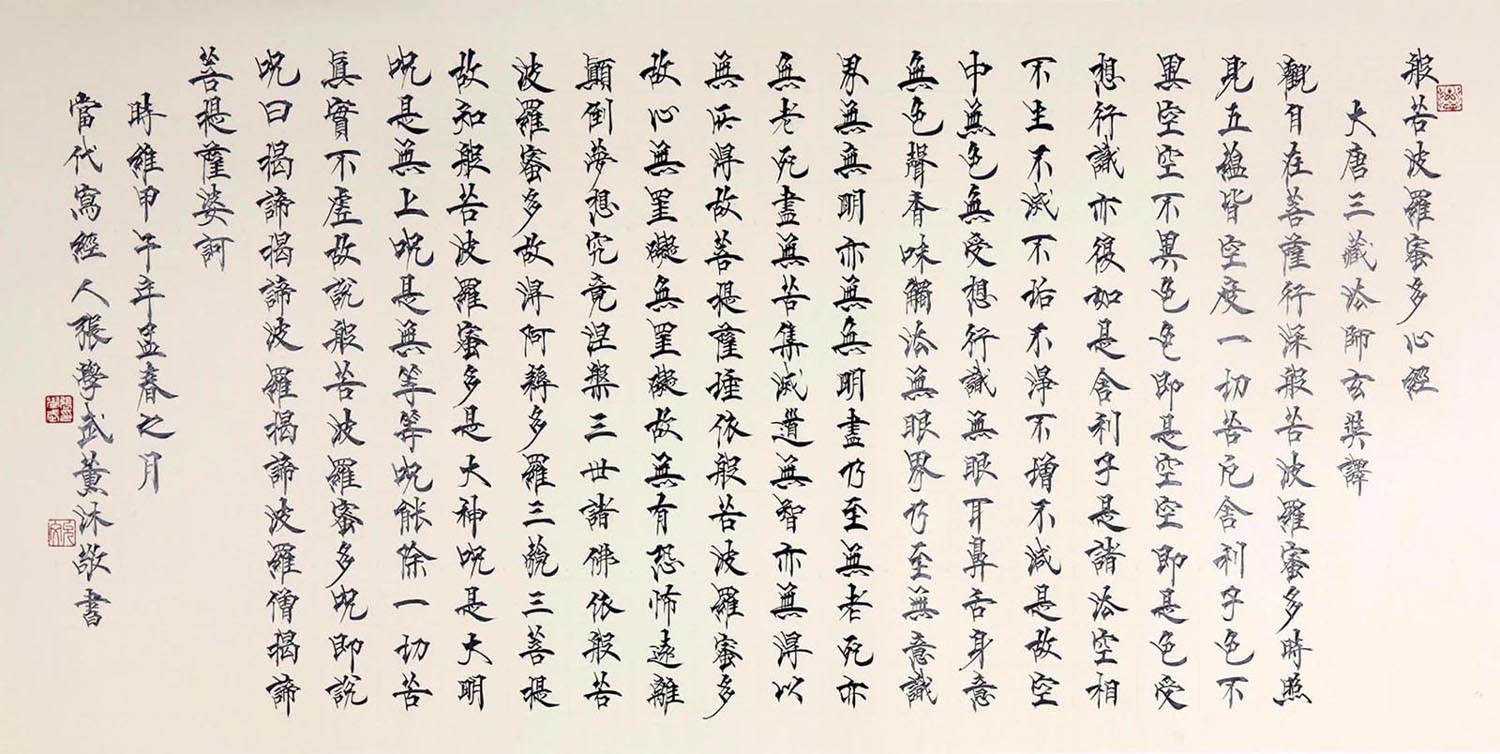 般若波羅蜜多心經
大唐三藏法師玄奘譯
觀自在菩薩行深般若波羅蜜多時照
見五蘊皆空度一切苦厄舍利子色不
異空空不異色色即是空空即是色受
想行識亦復如是舍利子是諸法空相
不生不滅不垢不淨不增不減是故空
中無色無受想行識無眼耳鼻舌身意
無色聲香味觸法無眼界乃至無意識
界無無明亦無無明盡乃至無老死亦
無老死盡無苦集滅道無智亦無得以
無所得故菩提薩埵依般若波羅蜜多
故心無罣礙無罣礙故無有恐怖遠離
顛倒夢想究竟涅槃三世諸佛依般若
波羅蜜多故得阿耨多羅三藐三菩提
故知般若波羅蜜多是大神呪是大明
呪是無上呪是無等等呪能除一切苦
真實不虛故說般若波羅蜜多呪即說
呪曰揭諦揭諦波羅揭諦波羅僧揭諦
菩提薩婆訶
時維甲午年孟春之月
當代寫經人張學武薰沐敬書